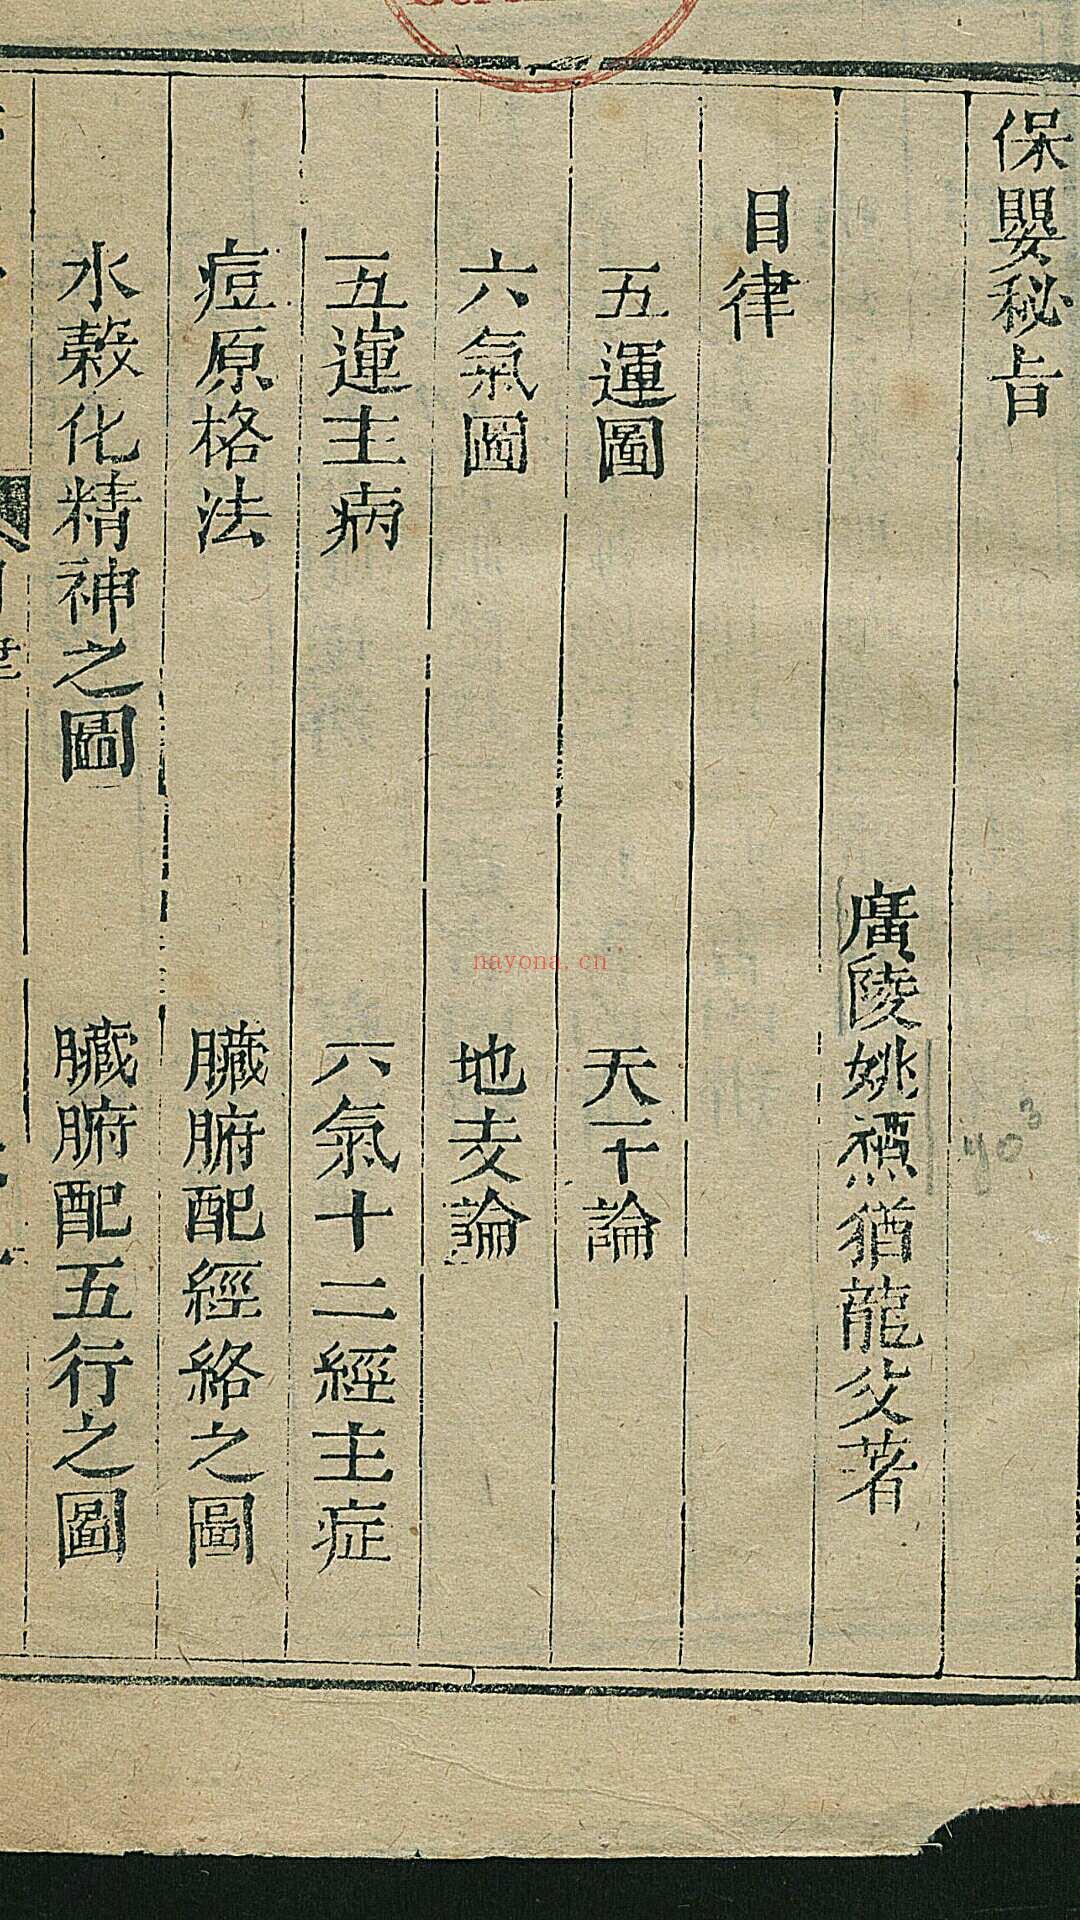 保嬰秘旨
廣陵姚 猶龍父著
目律
五運圖 天干論
六氣圖 地支論
五運主病 六氣十二經主症
痘原格法 臟腑配經絡之圖
水穀化精神之圖 臟腑配五行之圖
nayona.cn